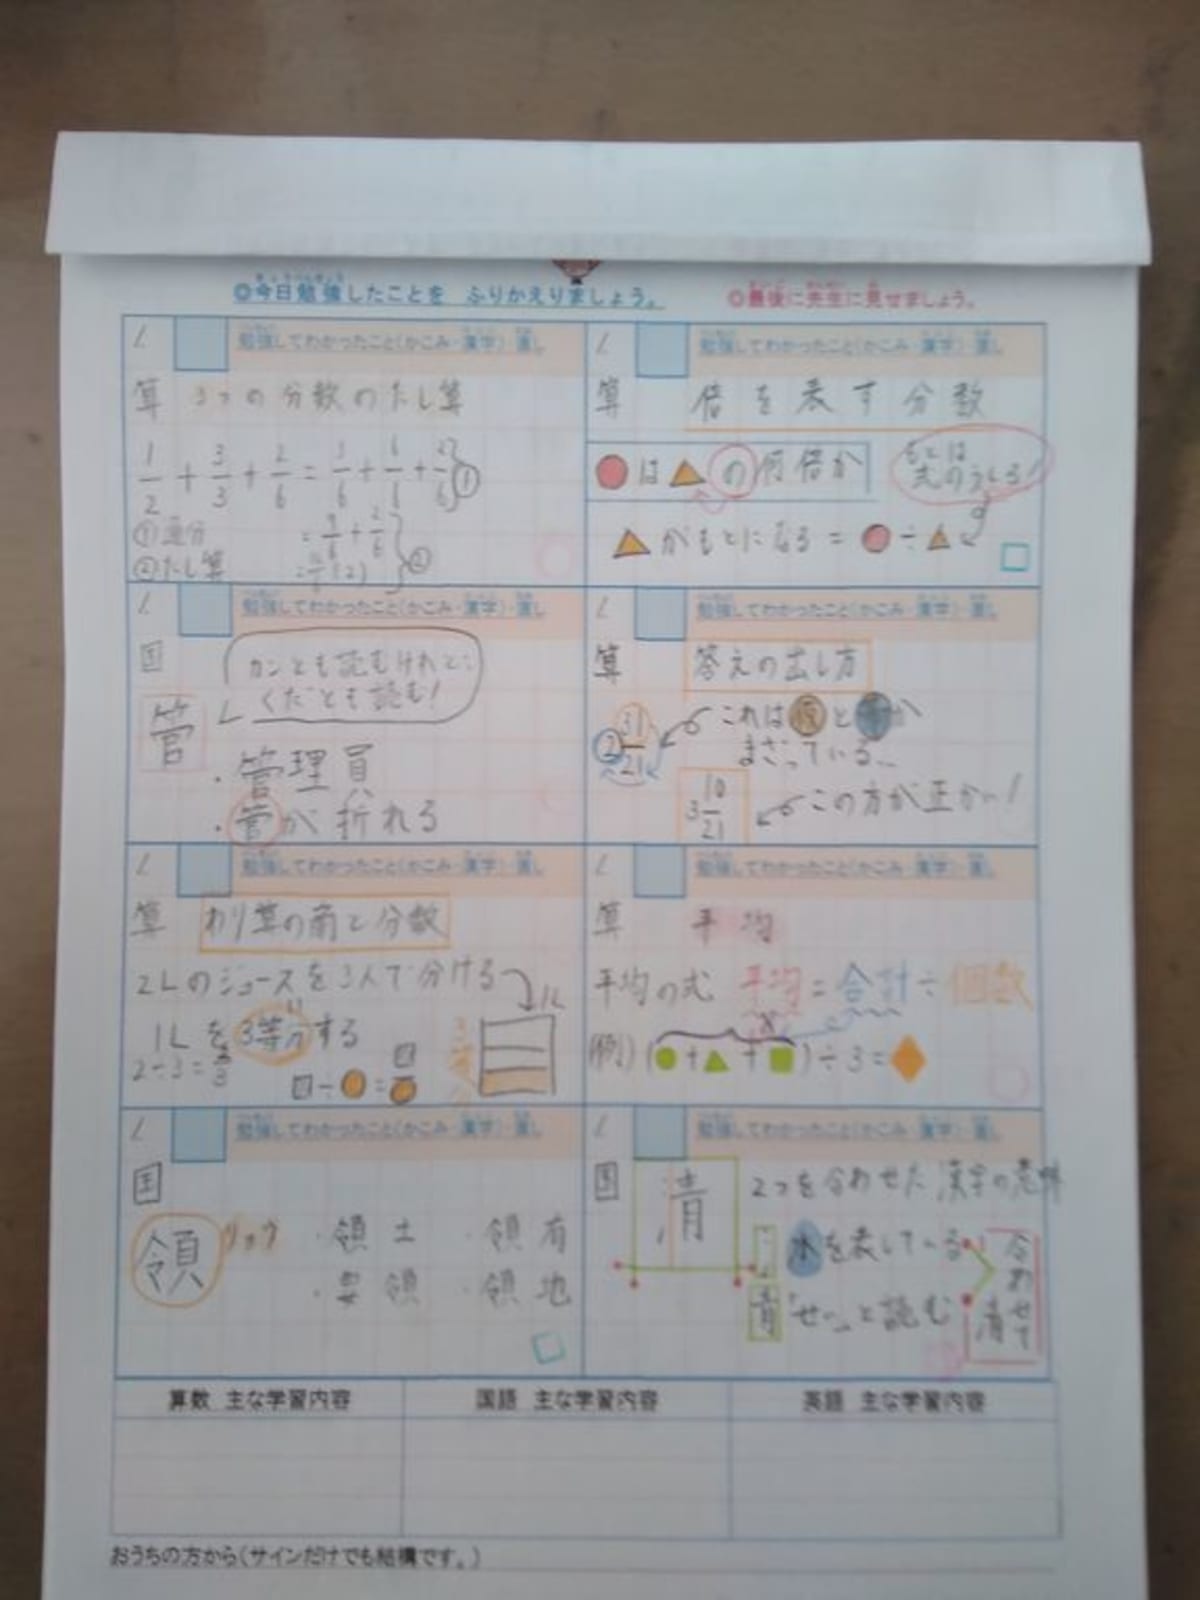 ◎今日勉強したことを ふりかえりましょう。
◎最後に先生に見せましょう。
勉強してわかったこと(かこみ・漢字)・直し
算 3つの分数のたし算
1/2 + 3/3 + 2/6 =
①通分
②たし算
勉強してわかったこと(かこみ・漢字)・直し
算 倍を表す分数
●は▲の何倍か
もとは
式のうしろ!
▲がもとになる = ●÷▲
勉強してわかったこと(かこみ・漢字)・直し
国
カンとも読むけれど
くだとも読む!
管
・管理員
・管が折れる
勉強してわかったこと(かこみ・漢字)・直し
算 答えの出し方
2 31/21
これは
まざっている
3 10/21 この方が正かい!
勉強してわかったこと(かこみ・漢字)・直し
算 わり算の商と分数
2Lのジュースを3人で分ける
1L
1Lを3等分する
2÷3=2/3
□÷●=□/●
勉強してわかったこと(かこみ・漢字)・直し
算 平均
平均の式 平均=合計÷個数
(例) (●+▲+■)÷3=◆
勉強してわかったこと(かこみ・漢字)・直し
国
領 リョウ ・領土 ・領有
・要領 ・領地
勉強してわかったこと(かこみ・漢字)・直し
国 清 2つを合わせた漢字の意味
水を表している
青 「せい」と読む
合わせて
清
算数 主な学習内容
国語 主な学習内容
英語 主な学習内容
おうちの方から(サインだけでも結構です。)